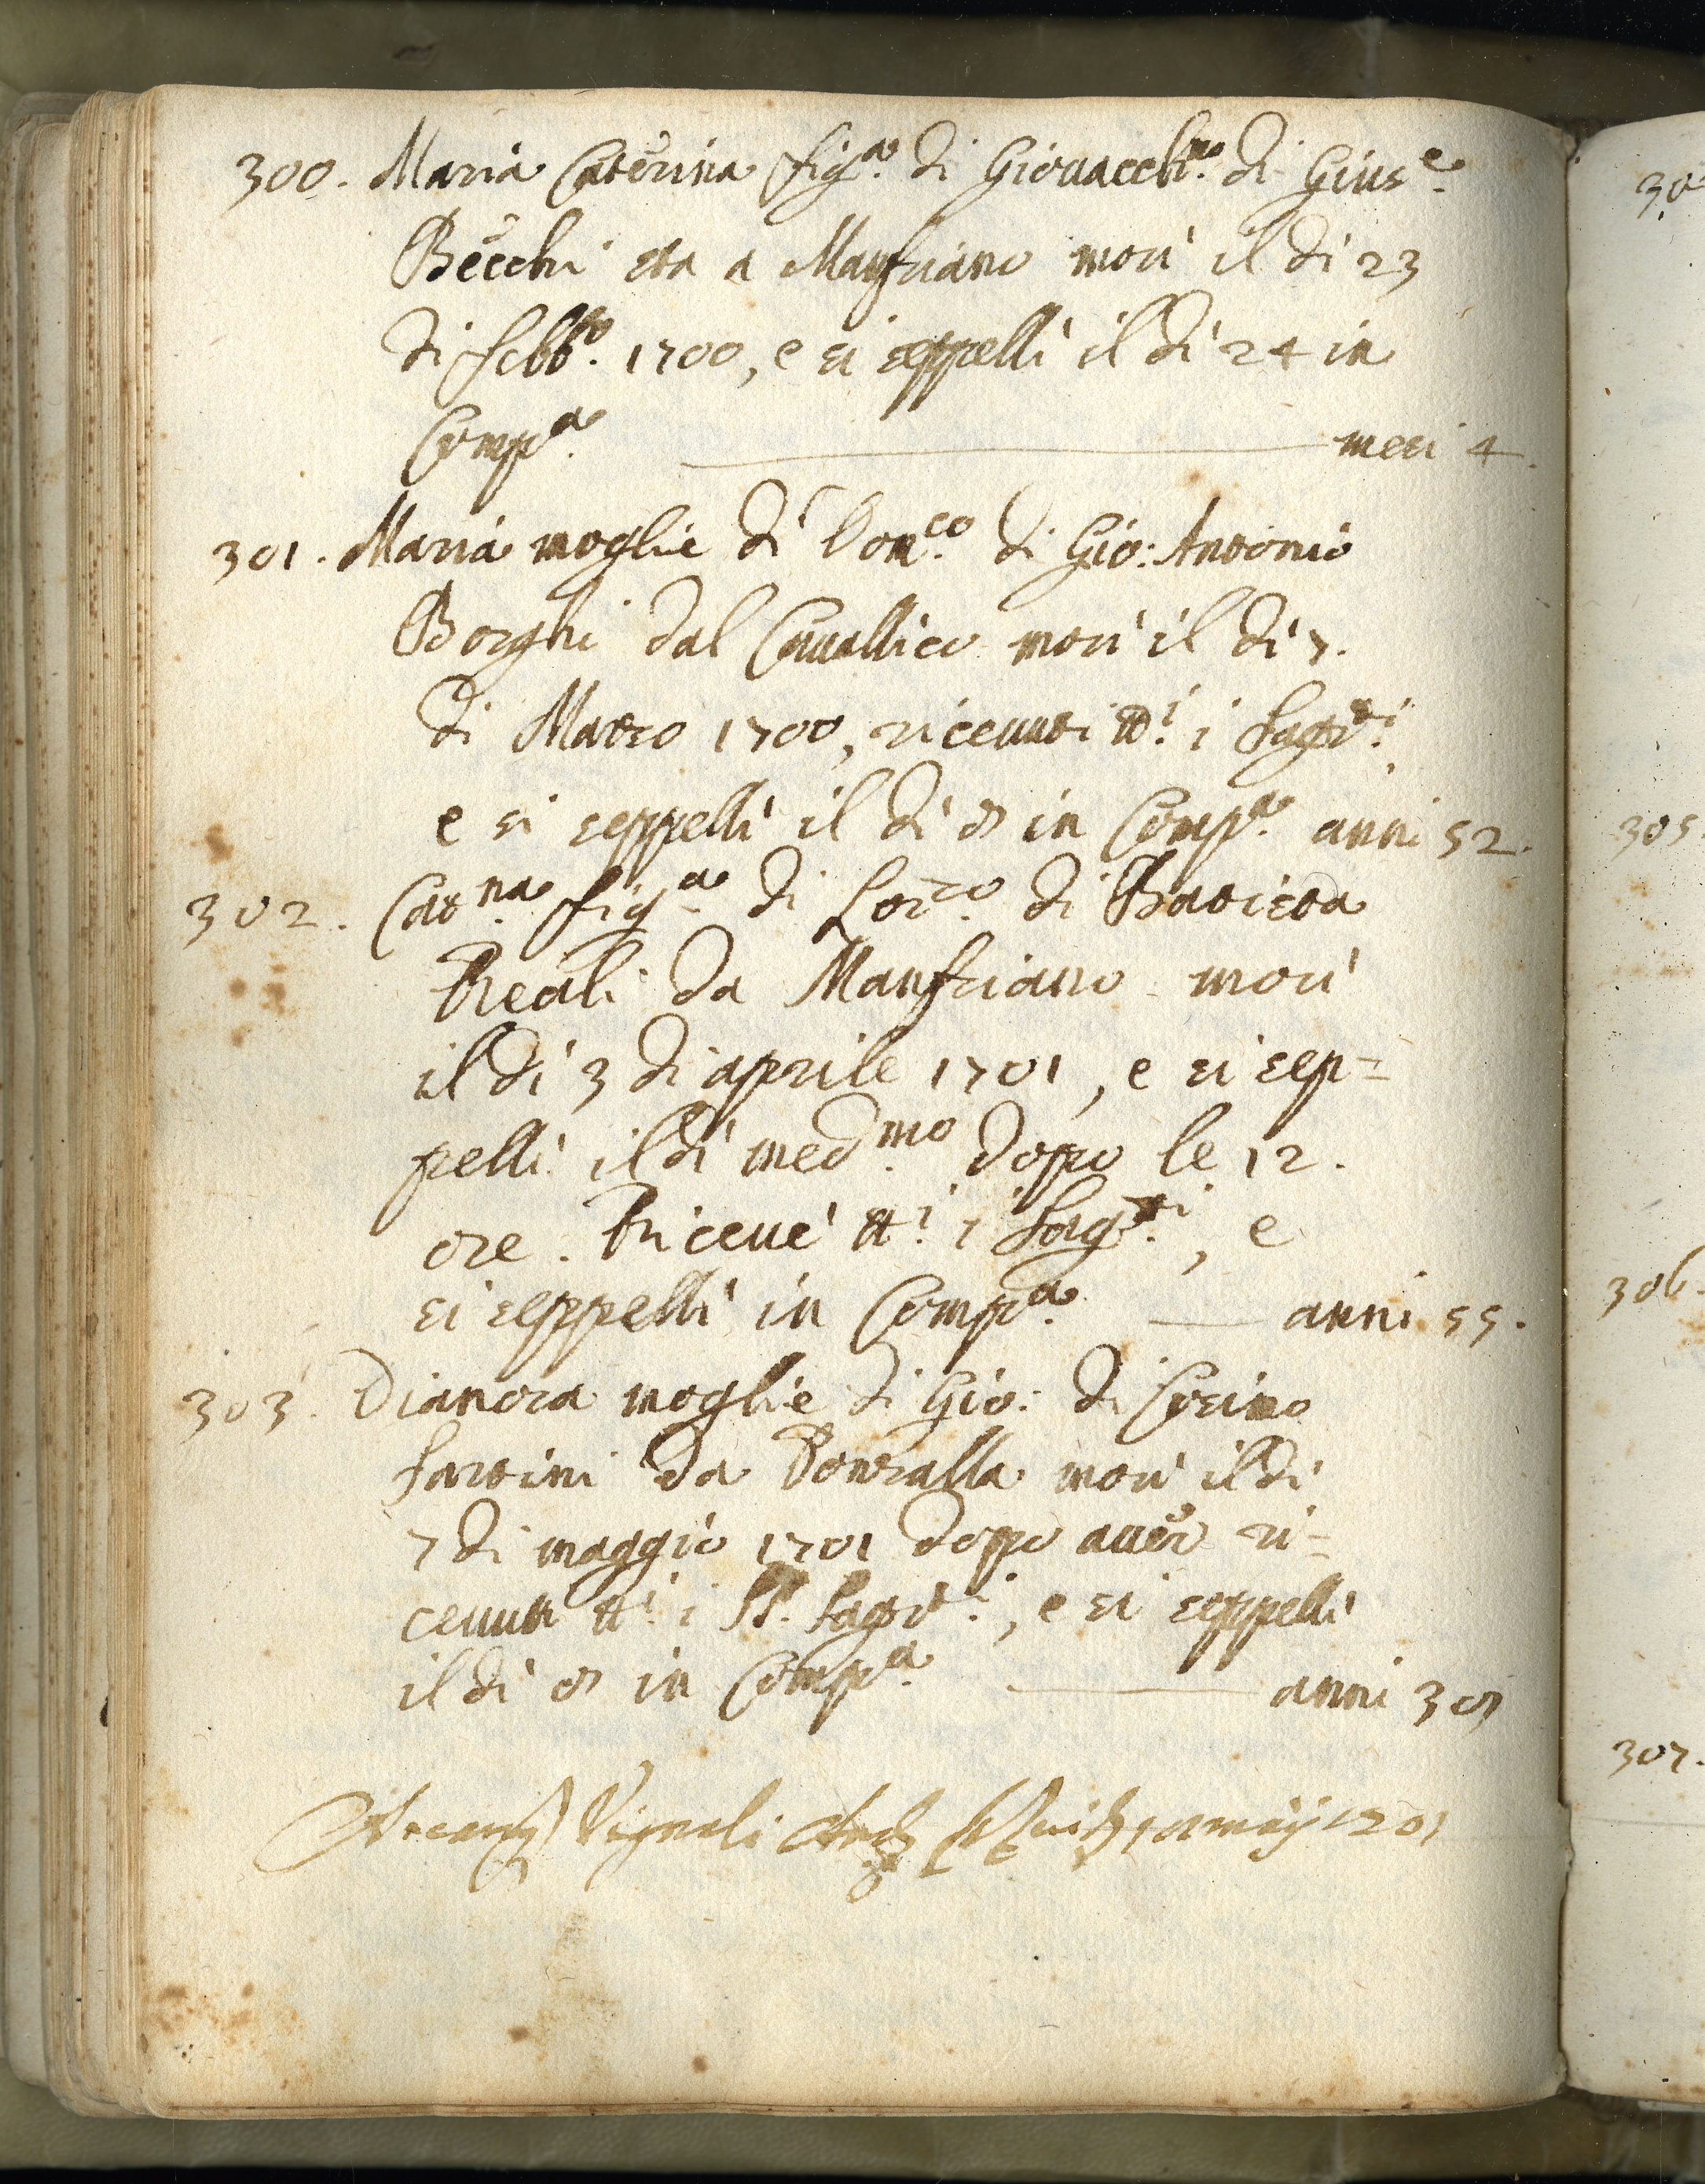 300. Maria Caterina fig.a di Giovacch.no di Gius.e
Becchi sta a Manfriano morì il dì 23
di Febb.o 1700, e si seppellì il dì 24 in
Comp.a mesi 4.
301. Maria moglie di Dom.co di Gio: Antonio
Borghi dal morì il dì 7.
di Marzo 1700, ricevuti tt.i i Sagr.ti
e si seppellì il dì 8 in Comp.a anni 52.
302. Cat.na fig.a di Lor.zo di Batista
Reali da Manfriano morì
il dì 3 di aprile 1701, e si sep=
pellì il dì med.mo dopo le 12.
ore. Ricevè tt.i i Sag.ti, e
si seppellì in Comp.a anni 55.
303. Dianora moglie di Gio: di Cosimo
Sartini da morì il dì
7 di maggio 1701 dopo aver ri=
cevuti tt.i i SS. Sagr.i, e si seppellì
il dì 8 in Comp.a anni 38
Vignali 1701
305.
306.
307.